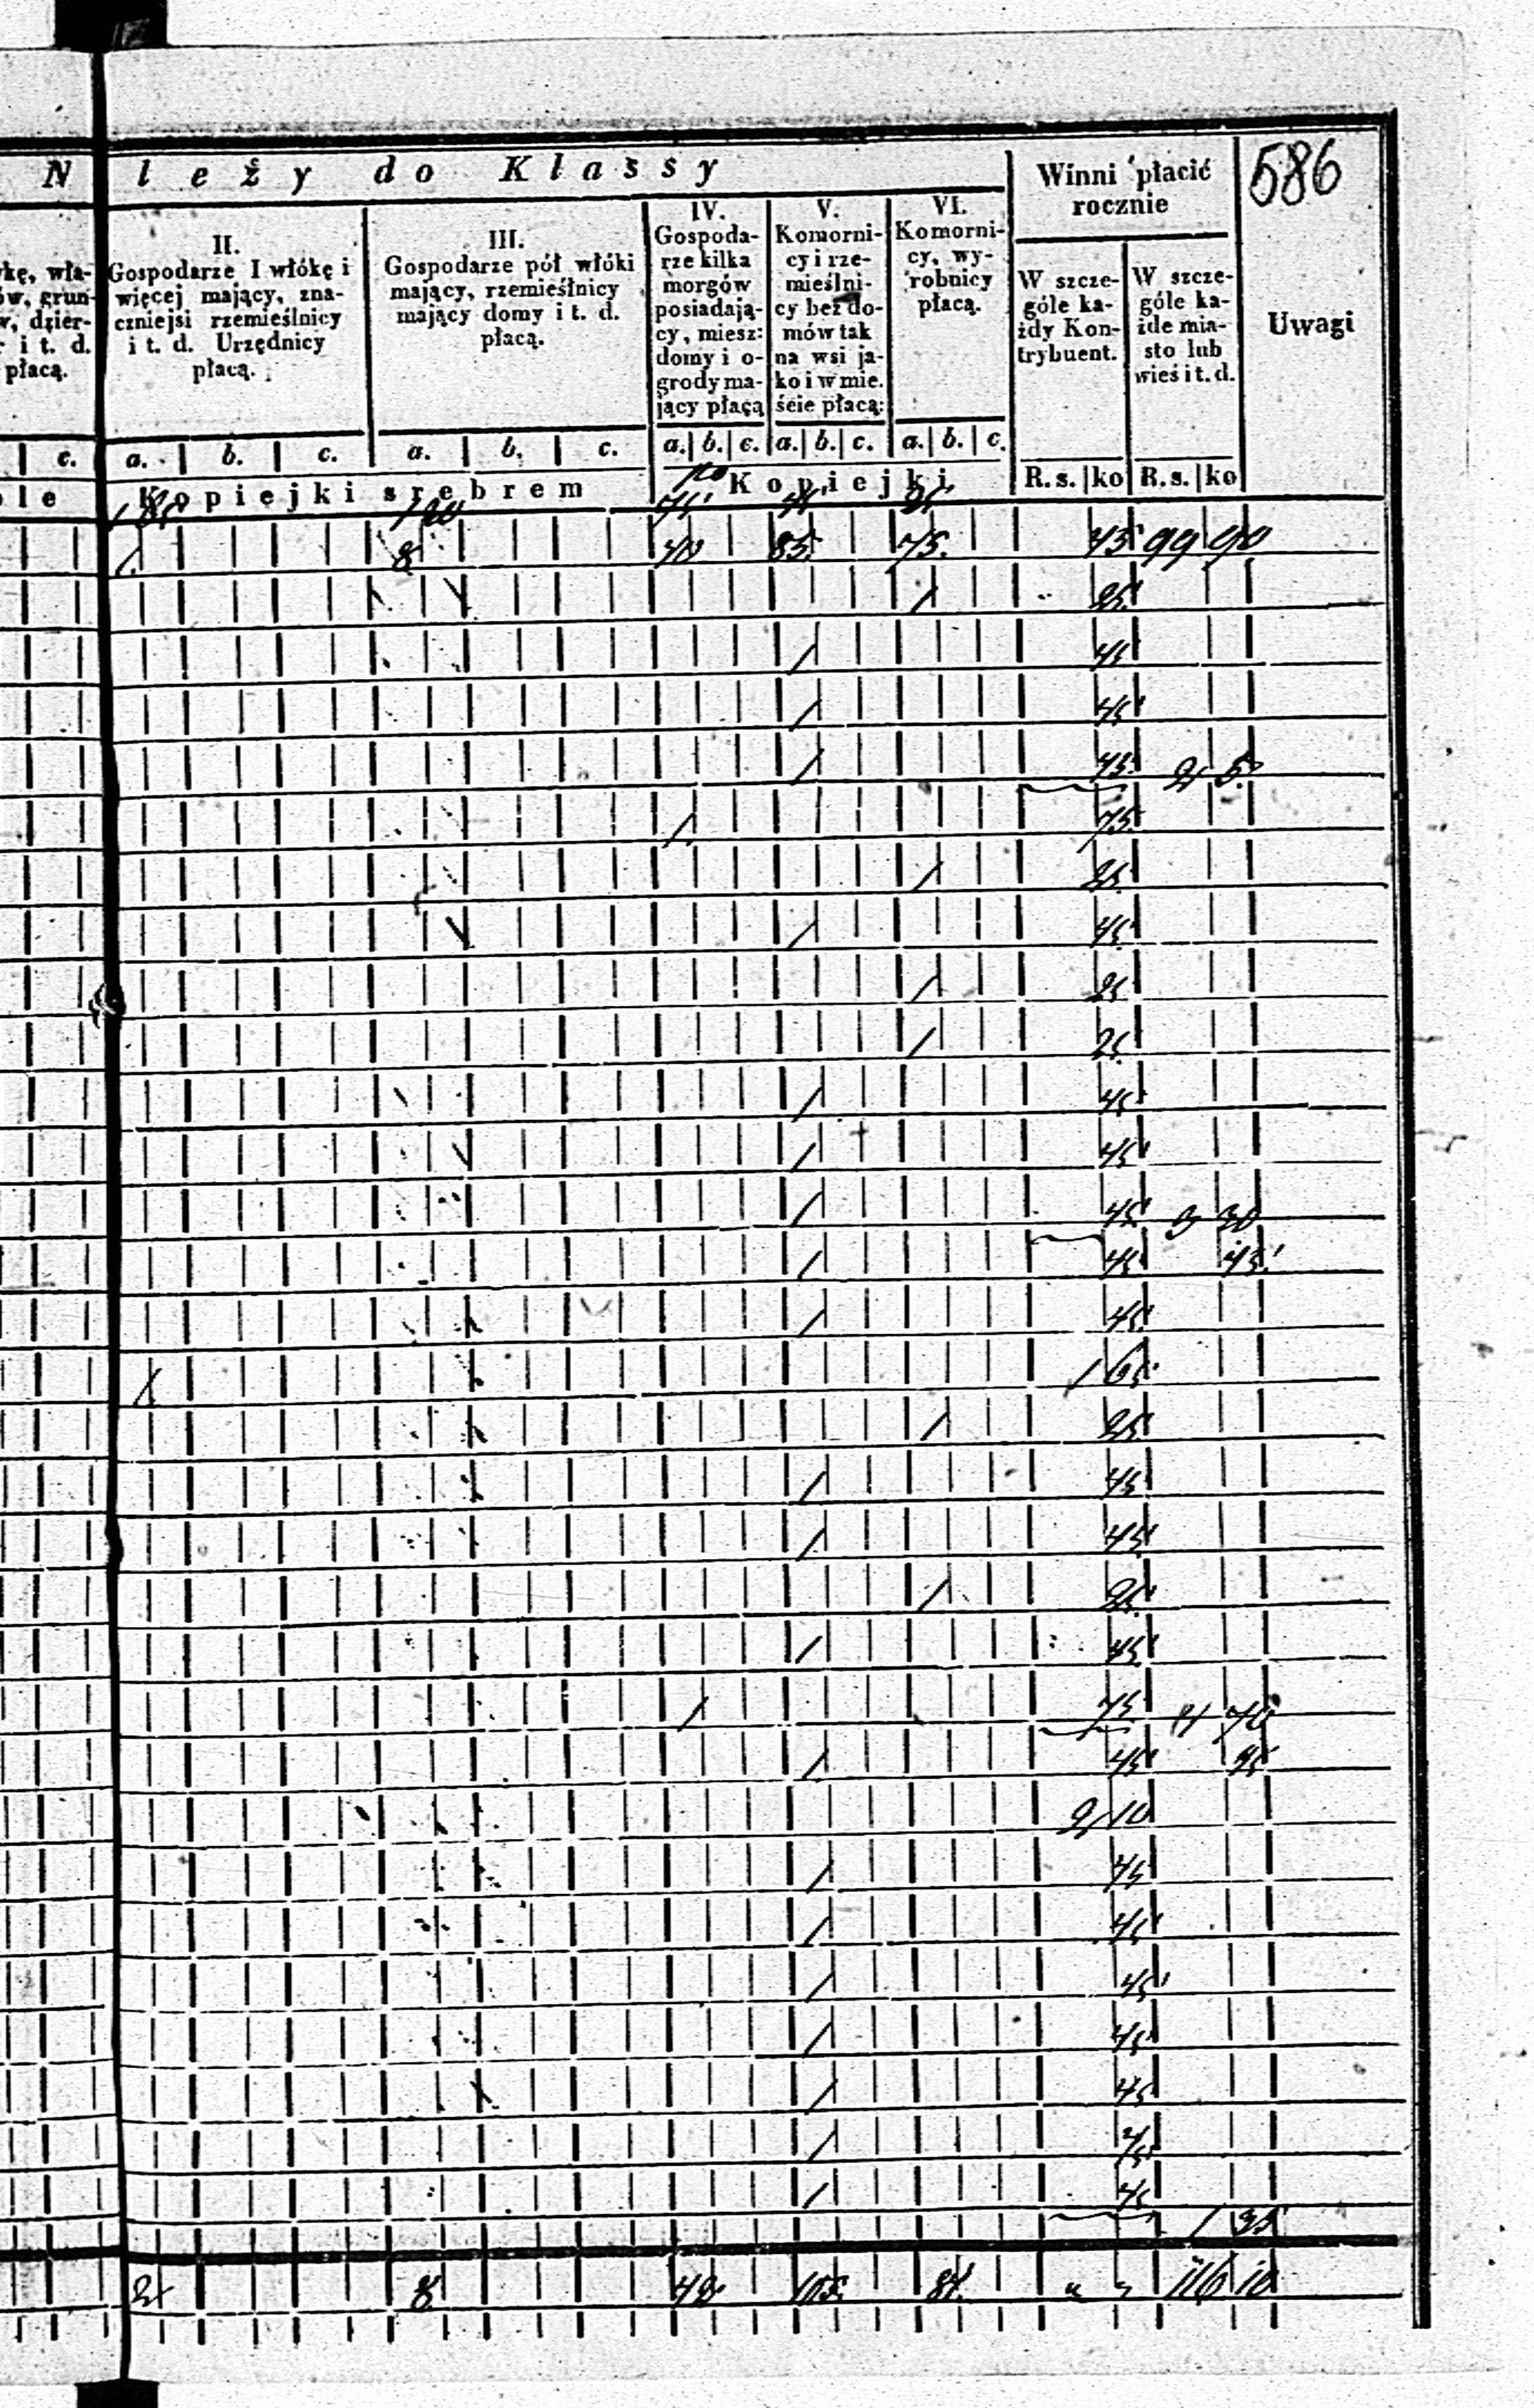 586
N leży do Klassy
Winni płacić
rocznie
Uwagi
kę, wła-
ów, grun-
w, dzier-
r i t. d.
płacą.
II.
Gospodarze I włókę i
więcej mający, zna-
czniejsi rzemieślnicy
i t. d. Urzędnicy
płacą.
III.
Gospodarze pół włóki
mający, rzemieślnicy
mający domy i t. d.
płacą.
IV.
Gospoda-
rze kilka
morgów
posiadają-
cy, miesz:
domy i o-
grody ma-
jący płacą
V.
Komorni-
cy i rze-
mieślni-
cy bez do-
mów tak
na wsi ja-
ko i w mie.
ście płacą:
VI.
Komorni-
cy, wy-
robnicy
płacą.
W szcze-
góle ka-
żdy Kon-
trybuent.
W szcze-
góle ka-
żde mia-
sto lub
wieś i t. d.
c. a. b. c. a. b. c. a. b. c. a. b. c. a. b. c.
le Kopiejki srebrem Kopiejki R. s. ko R. s. ko
1 8 40 85 75 45 99 90
/ 25
/ 45
/ 45
/ 45 2 5
/ 75
/ 25
/ 45
/ 25
/ 25
/ 45
/ 45
/ 45 3 30
/ 45 45
/ 45
/ 1 65
/ 25
/ 45
/ 45
/ 25
/ 45
/ 75 4 70
/ 45 45
2 10
/ 45
/ 45
/ 45
/ 45
/ 45
/ 45
/ 45
1 35
2 8 42 105 84 116 10